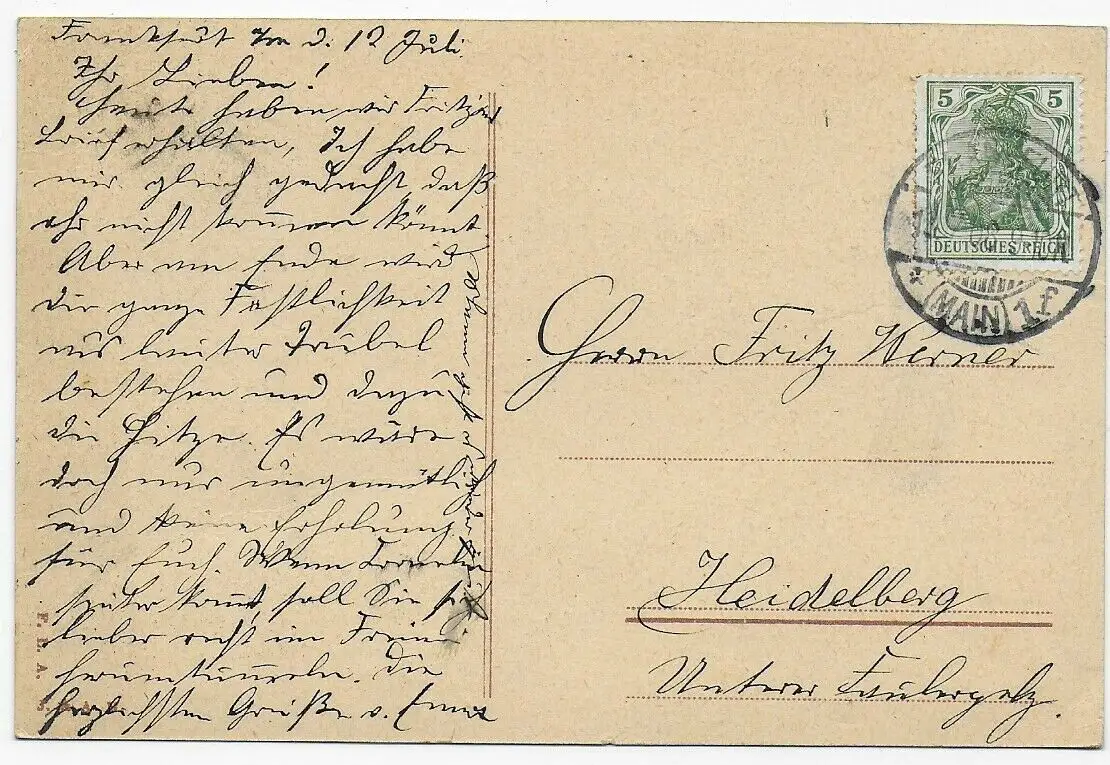 Frankfurt a/m d. 12 Juli.
Ihr Lieben!
Heute haben wir Fritzes
Brief erhalten, Ich habe
mir gleich gedacht, daß
ihr nicht kommen könnt.
Aber am Ende wird
die ganze Festlichkeit
aus lauter Trubel
bestehen und dazu
die Hitze. Es wäre
doch nur ungemütlich
und keine Erholung
für Euch. Wenn
später kommt, soll Sie sich
lieber recht im Freien
herumtummeln. Die
herzlichsten Grüße v.
F. E. A.
5 5
DEUTSCHES REICH
(MAIN) 1f
Herrn Fritz Werner
Heidelberg
Unterer Faulerpelz.